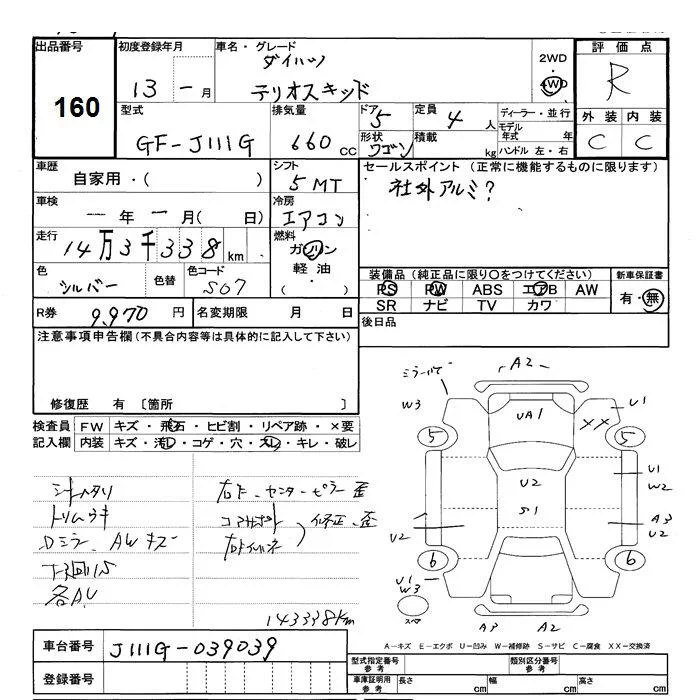 出品番号 初度登録年月 車名・グレード 評価点
160
13 年 一 月
ダイハツ
テリオスキッド
2WD
4WD
R
型式 排気量 ドア 定員 ディーラー・並行 外装 内装
GF-J111G 660 CC 5 4 人
モデル年式 年
形状 積載 kg ハンドル 左・右
ワゴン
C C
車歴 シフト セールスポイント (正常に機能するものに限ります)
自家用・( ) 5MT
社外アルミ?
車検 冷房
一 年 一 月( 日) エアコン
走行 燃料
14万3千338km ガソリン
軽油
( )
色 色替 色コード
シルバー S07
装備品 (純正品に限り○をつけてください) 新車保証書
PS PW ABS エアB AW 有・無
SR ナビ TV カワ
R券 9,970 円 名変期限 月 日
後日品
注意事項申告欄(不具合内容等は具体的に記入して下さい)
修復歴 有 [箇所 ]
検査員 FW キズ・飛石・ヒビ割・リペア跡・×要
記入欄 内装 キズ・汚レ・コゲ・穴・スレ・キレ・破レ
シートヘタリ
トリムウキ
Dミラー、AWキズ
下廻リS
各AU
右F・センターピラー歪
コアサポート
右Fインネ
修正、歪
143338km
A2
W3
UA1
XX
U1
5
5
U1
W2
U2
S1
A3
U2
U2
6
6
U1
W3
スペア
A3 A2
A-キズ E-エクボ U-凹み W-補修跡 S-サビ C-腐食 XX-交換済
車台番号 J111G-039039
登録番号
型式指定番号 参考 類別区分番号 参考
車庫証明用 参考 長さ cm 幅 cm 高さ cm